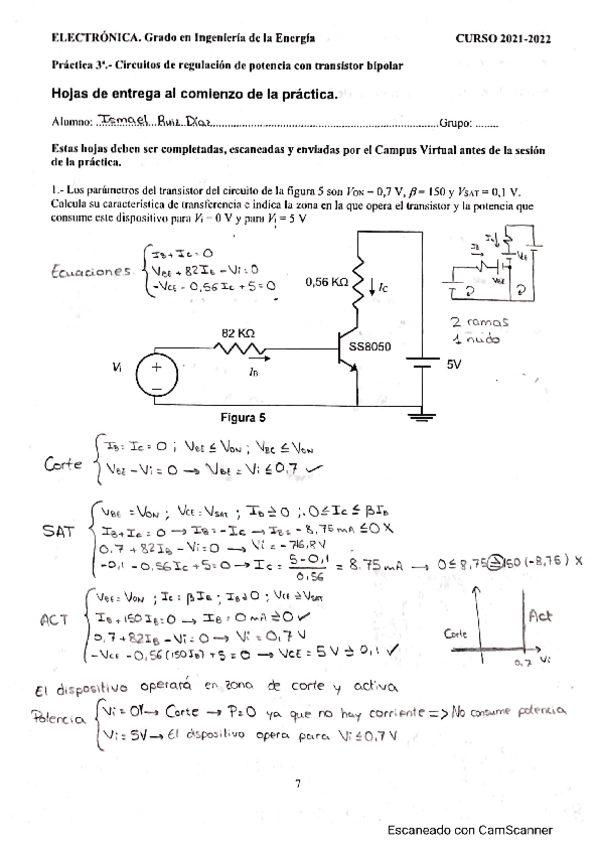 ELECTRÓNICA. Grado en Ingeniería de la Energía CURSO 2021-2022
Práctica 3ª.- Circuitos de regulación de potencia con transistor bipolar
Hojas de entrega al comienzo de la práctica.
Alumno: Ismael Ruiz Díaz Grupo: ........
Estas hojas deben ser completadas, escaneadas y enviadas por el Campus Virtual antes de la sesión
de la práctica.
1.- Los parámetros del transistor del circuito de la figura 5 son VON = 0,7 V, β = 150 y VSAT = 0,1 V.
Calcula su característica de transferencia e indica la zona en la que opera el transistor y la potencia que
consume este dispositivo para Vi = 0 V y para Vi = 5 V
Ecuaciones
IB + IC = 0
VBE + 82IB - Vi = 0
-VCE - 0,56IC + 5 = 0
0,56 KΩ
IC
IB
IC
VCE
VBE
2 ramas
1 nudo
82 KΩ
SS8050
Vi
IB
5V
Figura 5
Corte
IB = IC = 0 ; VBE ≤ VON ; VBC ≤ VON
VBE - Vi = 0 → VBE = Vi ≤ 0,7 ✓
SAT
VBE = VON ; VCE = VSAT ; IB ≥ 0 ; 0 ≤ IC ≤ βIB
IB + IC = 0 → IB = -IC → IB = -8,75 mA ≤ 0 X
0.7 + 82IB - Vi = 0 → Vi = -716,8 V
-0,1 - 0,56IC + 5 = 0 → IC = 5-0,1/0,56 = 8.75 mA → 0 ≤ 8,75 ≥ 150 (-8,75) X
ACT
VBE = VON ; IC = βIB ; IB ≥ 0 ; VCE ≥ VSAT
IB + 150IB = 0 → IB = 0 mA ≥ 0 ✓
0.7 + 82IB - Vi = 0 → Vi = 0,7 V
-VCE - 0,56(150IB) + 5 = 0 → VCE = 5 V ≥ 0,1 ✓
Corte
Act
0,7 Vi
El dispositivo operará en zona de corte y activa
Potencia
Vi = 0V → Corte → P=0 ya que no hay corriente => No consume potencia
Vi = 5V → El dispositivo opera para Vi ≤ 0,7 V
7
Escaneado con CamScanner